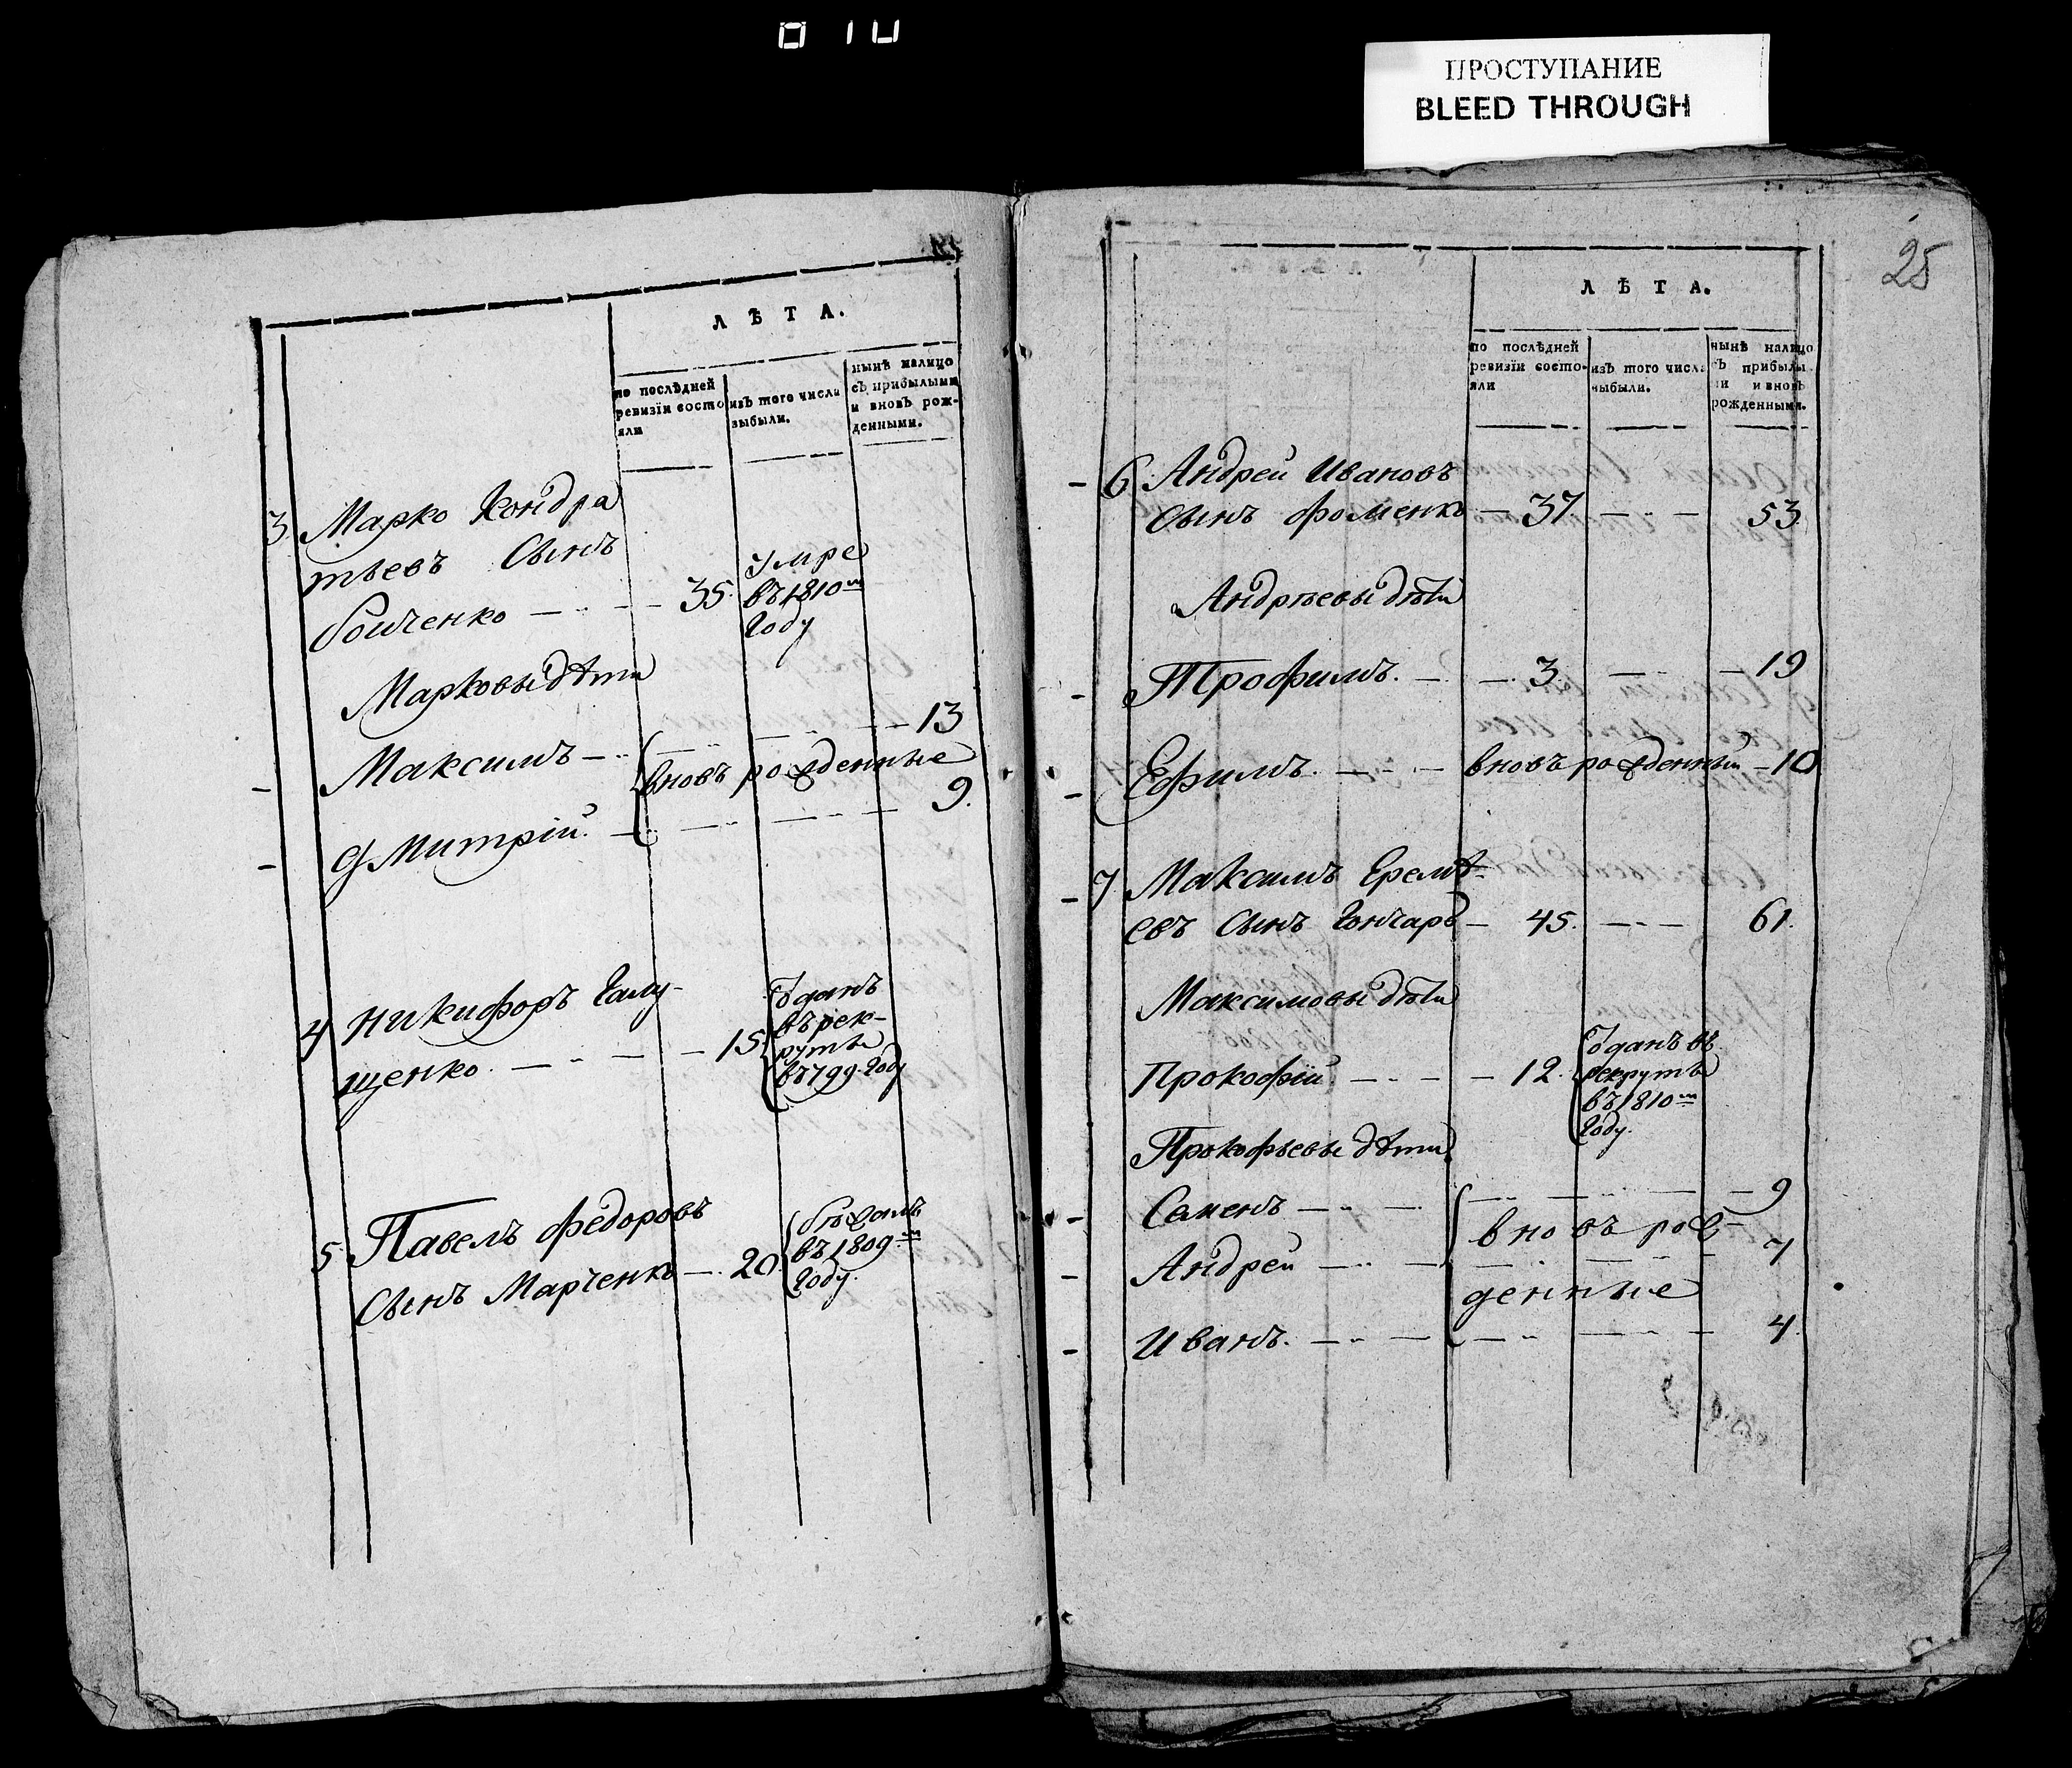 010
ПРОСТУПАНИЕ
BLEED THROUGH
ЛѢТА.
по послѣдней
ревизіи состо
яли
изъ того числа
выбыли.
нынѣ налицо
съ прибылыми
и вновь рож-
денными.
3. Марко Кондра
тьевъ Сынъ
Бойченко 35. умре
въ 1810м
Году
Марковы дѣти
Максимъ 13
вновь рожденные
Дмитрій. 9.
4 Никифоръ Галу-
щенко. 15. Отданъ
въ рек-
руты
въ 799. Году
5 Павелъ Федоровъ
Сынъ Марченко 20. бѣжалъ
въ 1809м
Году.
25
ЛѢТА.
по послѣдней
ревизіи состо-
яли
изъ того числа
выбыли.
нынѣ налицо
съ прибылы
ми и вновь
рожденными.
6 Андрей Ивановъ
Сынъ Фоменко 37. 53.
Андрѣевы дѣти
Трофимъ. 3. 19
Ефимъ. вновь рожденный 10
7 Максимъ Еремѣ-
евъ Сынъ Гончаръ 45. 61.
Максимовы дѣти
Прокофій. 12. Отданъ въ
рекруты
въ 1810м
Году.
Прокофьевы дѣти
Семенъ 9
вновь рож-
Андрей 7
денные
Иванъ. 4.